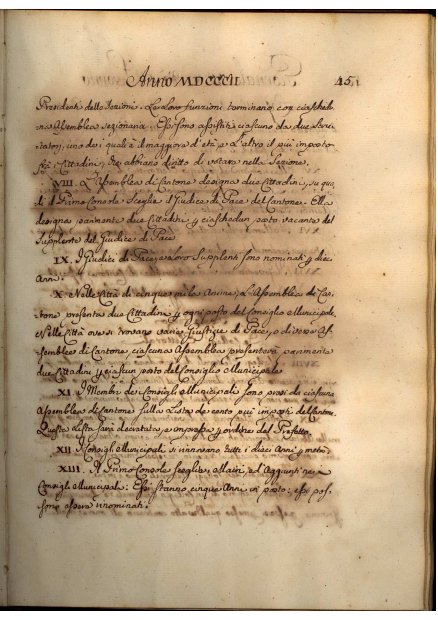 Anno MDCCCII 45.
Presidenti delle Sezioni. Le loro funzioni terminano con ciasched
una Assemblea sezionaria. Essi sono assistiti ciascuno da due Scru
tatori, uno dei quali è il maggiore d'età, e l'altro il più imposto
frà i Cittadini, che abbiano diritto di votare nella Sezione.
VIII. L'Assemblea di Cantone designa due Cittadini, su qua
li il Primo Console sceglie il Giudice di Pace del Cantone. Ella
designa parimente due Cittadini per ciaschedun posto vacante del
Supplente del Giudice di Pace
IX. I Giudici di Pace, e loro Supplenti sono nominati per dieci
Anni.
X. Nelle Città di cinque mila Anime, l'Assemblea di Can
tone presenta due Cittadini per ogni posto del Consiglio Municipale.
Nelle Città ove si trovano varie Giustizie di Pace, o diverse As
semblee di Cantone, ciascuna Assemblea presenterà parimente
due Cittadini per ciascun posto del Consiglio Municipale
XI. I Membri dei Consigli Municipali sono presi da ciascuna
Assemblea di Cantone sulla Lista de cento più imposti del Cantone.
Questa Lista sarà decretata, e impressa per ordine del Prefetto.
XII. I Consigli Municipali si rinnovano tutti i dieci Anni per metà.
XIII. Il Primo Console sceglie i Maires, ed Aggiunti nei
Consigli Municipali: Essi stanno cinque Anni in posto: essi pos
sono essere rinominati.